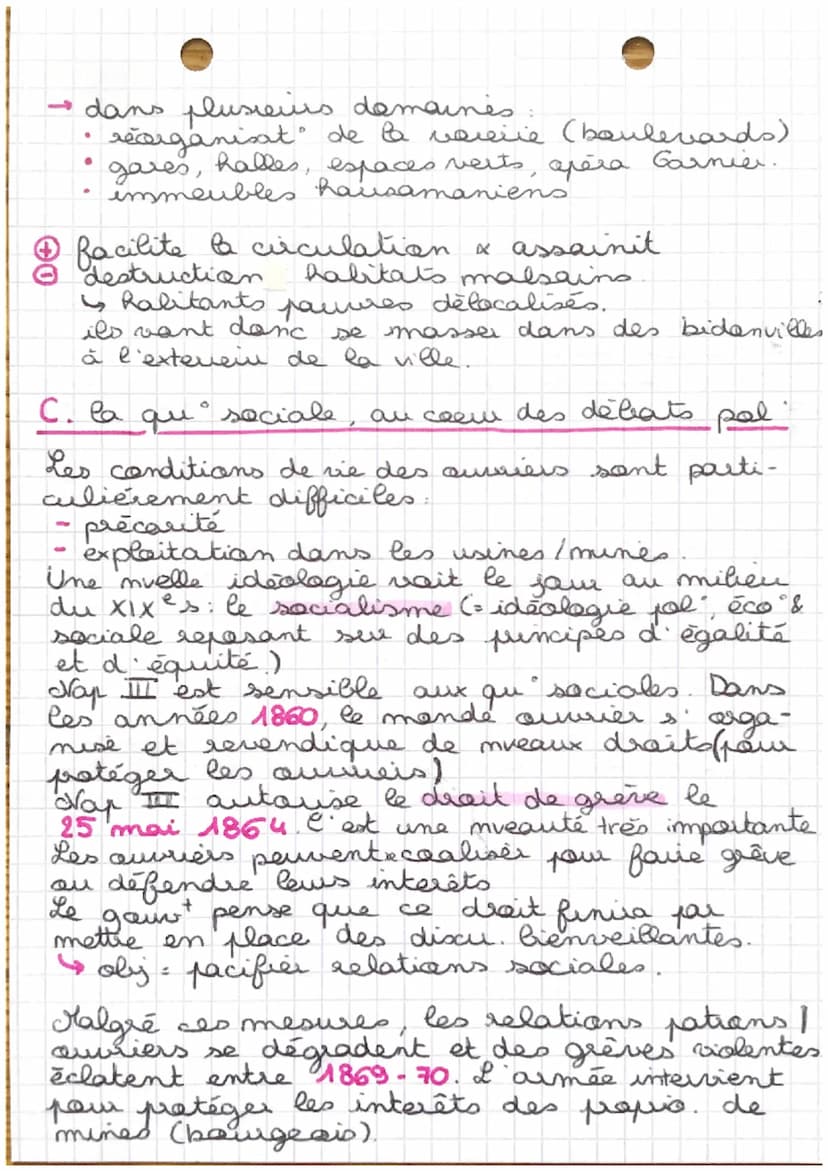 → dans plusieurs domaines :
• réorganisat° de la voierie (boulevards)
• gares, halles, espaces verts, opéra Garnier.
• immeubles haussmaniens
⊕ facilite la circulation & assainit
⊖ destruction habitats malsains
↳ habitants pauvres délocalisés.
ils vont donc se masser dans des bidonvilles
à l'exterieur de la ville.
C. la qu° sociale, au coeur des débats pol°
Les conditions de vie des ouvriers sont parti-
culièrement difficiles :
- précarité
- exploitation dans les usines / mines.
Une nvelle idéologie voit le jour au milieu
du XIXe s : le socialisme (= idéologie pol°, éco° &
sociale reposant sur des principes d'égalité
et d'équité.)
Nap III est sensible aux qu° sociales. Dans
les années 1860, le monde ouvrier s'orga-
nise et revendique de nveaux droits (pour
protéger les ouvriers)
Nap III autorise le droit de grève le
25 mai 1864. C'est une nveauté très importante
Les ouvriers peuvent se coaliser pour faire grève
ou défendre leurs interêts
Le gouv+ pense que ce droit finira par
mettre en place des discu. bienveillantes.
↳ obj = pacifier relations sociales.
Malgré ces mesures, les relations patrons /
ouvriers se dégradent et des grèves violentes
éclatent entre 1869-70. L'armée intervient
pour protéger les interêts des proprio. de
mines (bourgeois).